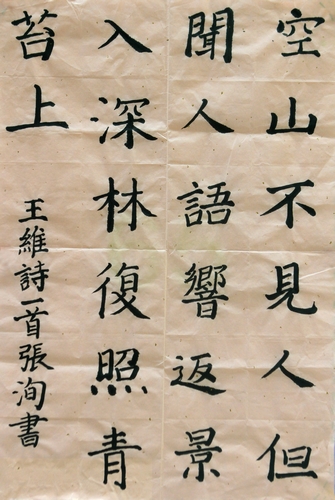 空山不見人但
聞人語響返景
入深林復照青
苔上
王維詩一首張洵書